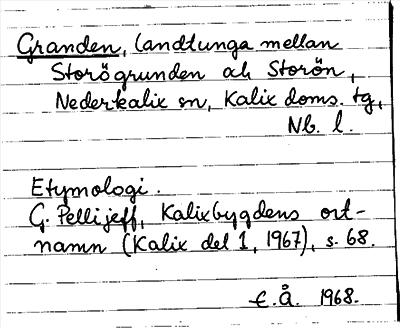 Granden, landtunga mellan
Storögrunden och Storön,
Nederkalix sn, Kalix doms. tg,
Nb. l.
Etymologi.
G. Pellijeff, Kalixbygdens ort-
namn (Kalix del 1, 1967), s. 68.
E.Å. 1968.